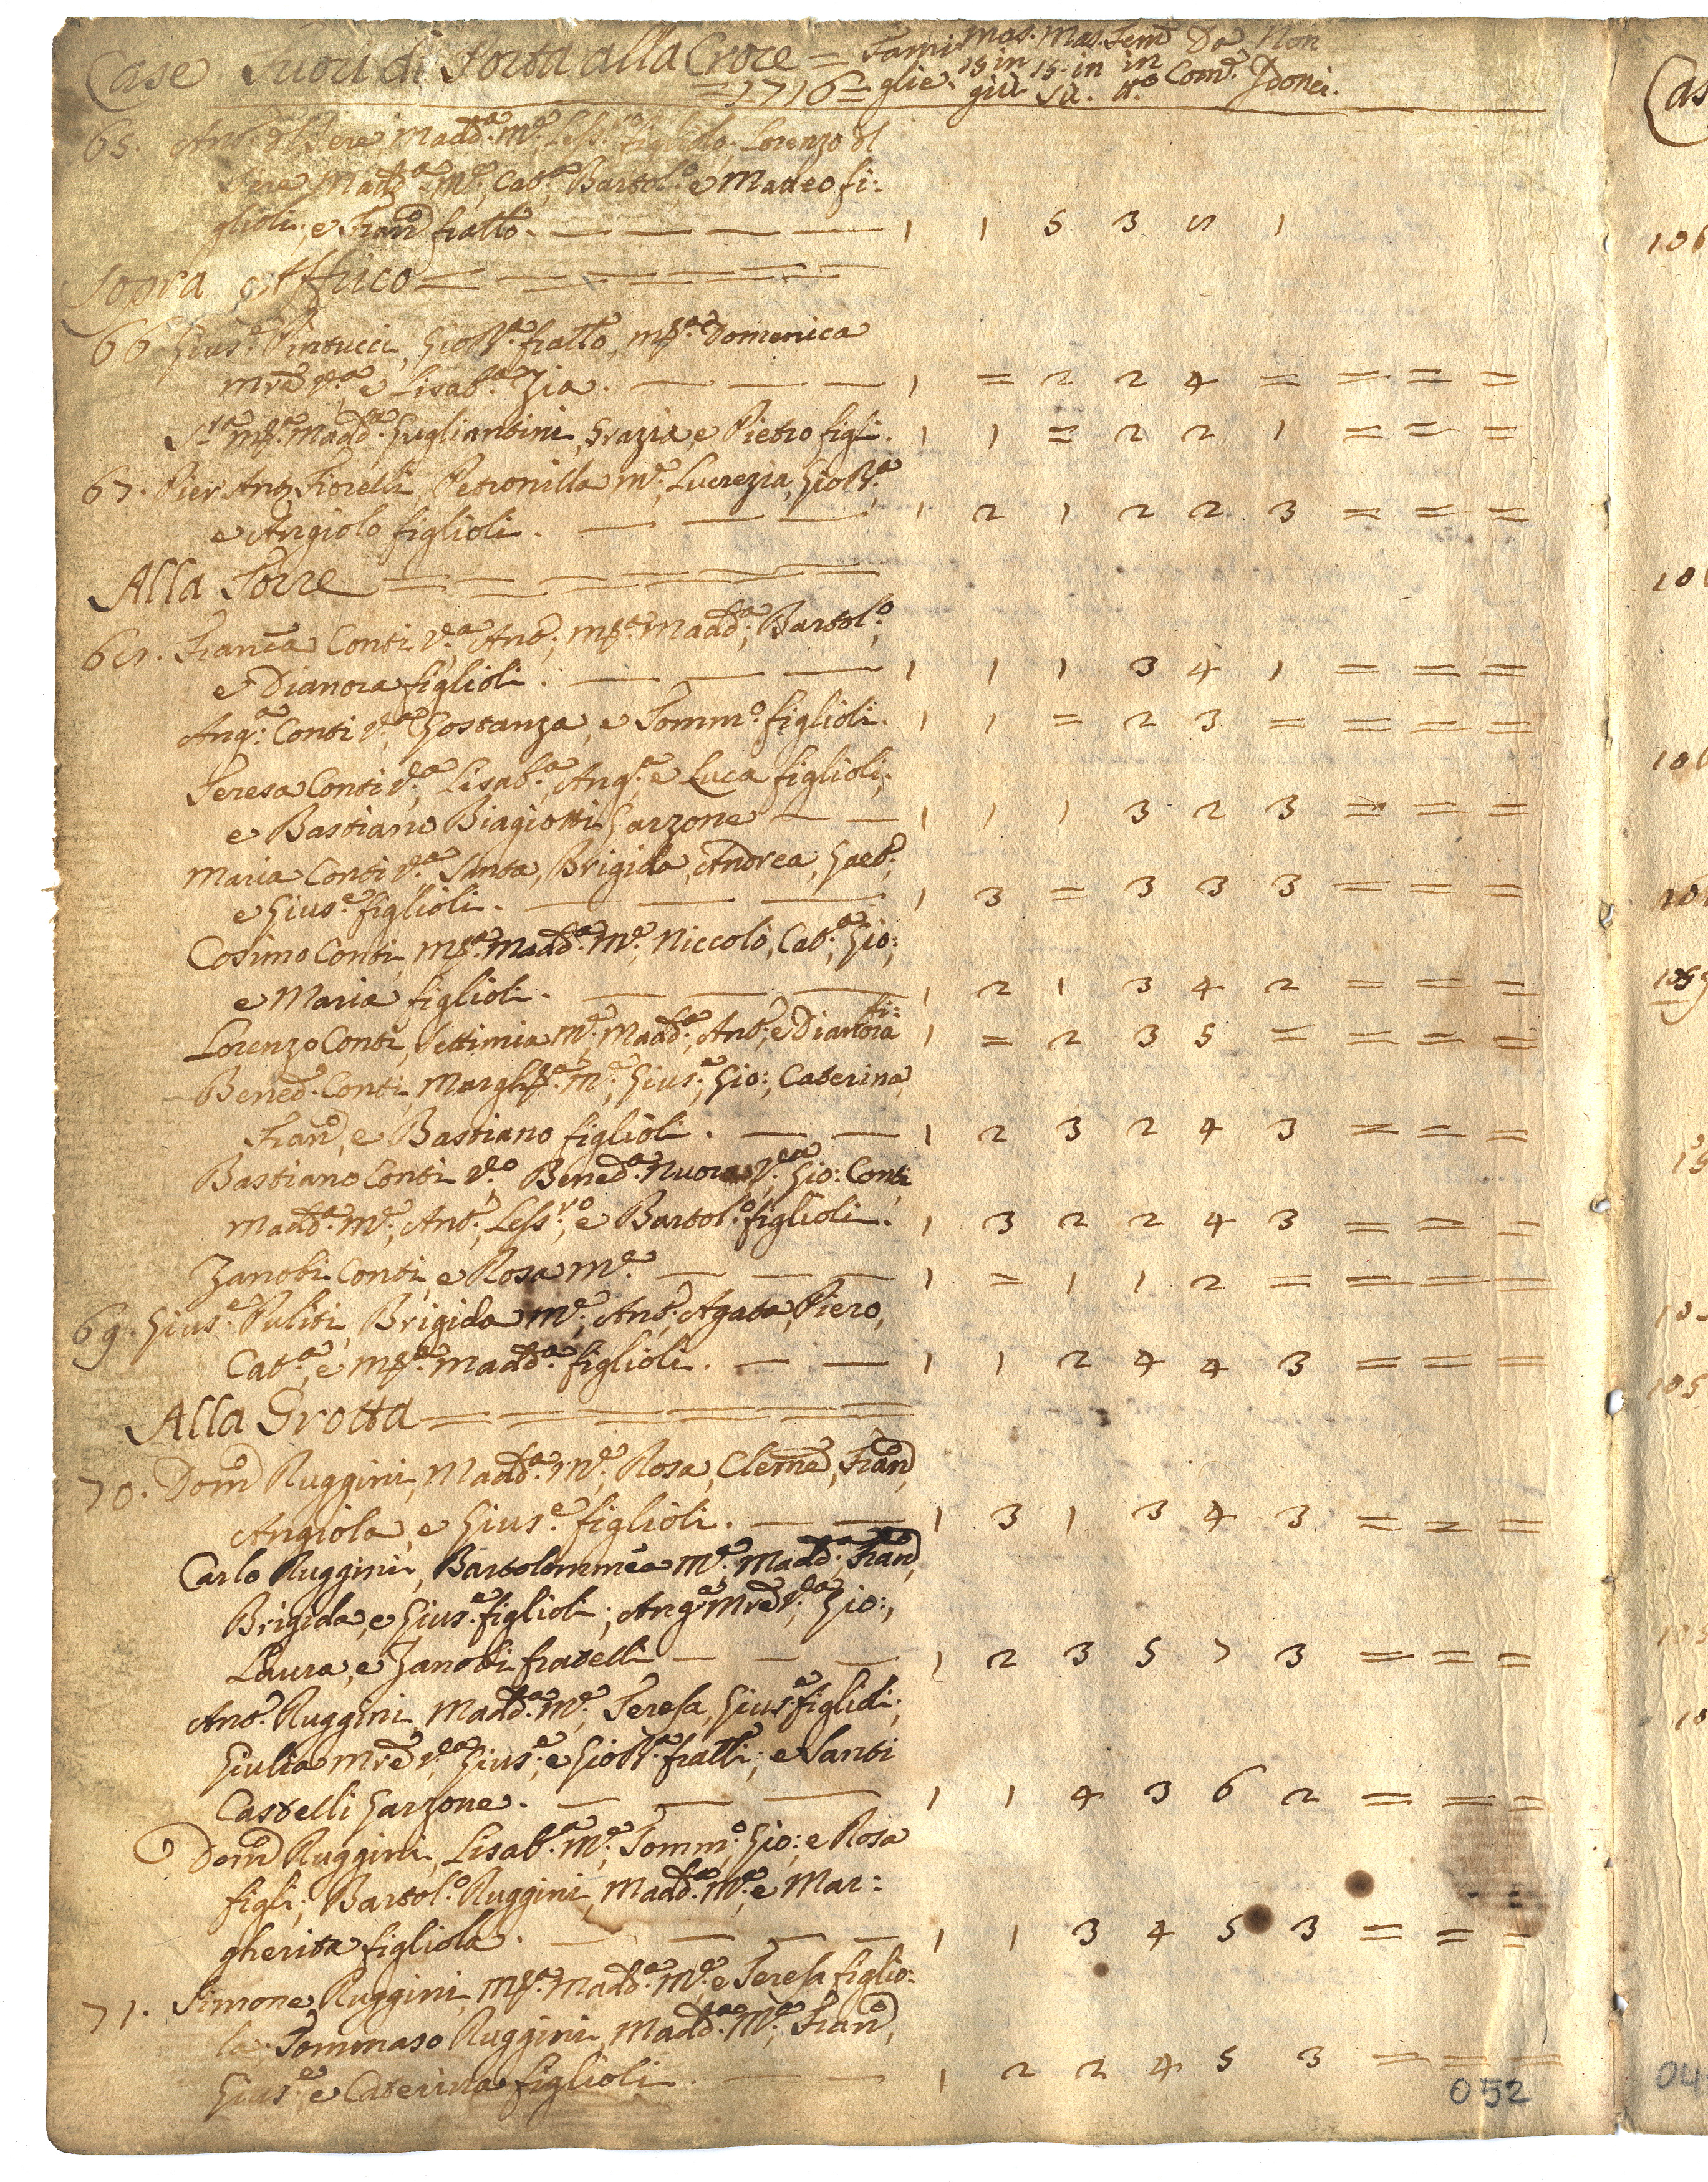 Case Fuori di Porta alla Croce = Fami mas. Mas. Fem. Da Non
=1716= glie. 15 in 15 in in Com.e Idonei.
giù sù. tt.o
65. Ant.o del Sere, Madd.a m.e, Less.ro figliolo, Lorenzo del
Sere Madd.a m.e, Cat.a, Bartol.o e Matteo fi:
glioli, e Fran.o fratto. — — — — 1 1 5 3 5 1
Sopra Affrico = = = = =
66 Gius.e Pintucci, Gio Bt.a fratto, m.a Domenica
mre v.a e Lisab.a Zia. — — — 1 = 2 2 4 = = = =
S.ta m.a Madd.a Gugliantini, Grazia, e Pietro figli. 1 1 = 2 2 1 = = =
67. Pier Ant.o Fiorelli Petronilla m.e, Lucrezia, Gio Bt.a
e Angiolo figlioli. — — — 1 2 1 2 2 3 = = =
Alla Torre = = = = = =
68. Franc.a Conti v.a Ant.o, m.a Madd.a, Bartol.o,
e Dianora figlioli. — — — 1 1 1 3 4 1 = = =
Ang.a Conti v.a Gostanza, e Tomm.o figlioli. 1 1 = 2 3 = = = =
Teresa Conti v.a, Lisab.a, Ang.a e Luca figlioli,
e Bastiano Biagiotti Garzone — — 1 1 1 3 2 3 = = =
Maria Conti v.a Santa, Brigida, Andrea, Gaet.o,
e Gius.e figlioli. — — — 1 3 = 3 3 3 = = =
Cosimo Conti, m.a Madd.a m.e, Niccolò, Cat.a, Gio:,
e Maria figlioli. — — — 1 2 1 3 4 2 = = =
Lorenzo Conti, Settimia m.e, Madd.a, Ant.o, e Dianora fi: 1 = 2 3 5 = = = =
Bened.o Conti, Margh.ta m.e, Gius.e, Gio:, Caterina
Fran.o, e Bastiano figlioli. — — 1 2 3 2 4 3 = = =
Bastiano Conti v.o Bened.a Nuora v.a, Gio: Conti
Madd.a m.e, Ant.o, Less.ro, e Bartol.o figlioli. 1 3 2 2 4 3 = = =
Zanobi Conti, e Rosa m.e — — — 1 = 1 1 2 = = = =
69. Gius.e Puliti, Brigida m.e, Ant.o, Agata, Piero,
Cat.a, e m.a Madd.a figlioli. — — 1 1 2 4 4 3 = = =
Alla Grotta = = = = = =
70. Dom.o Ruggini, Madd.a m.e, Rosa, Clem.e, Fran.o,
Angiola, e Gius.e figlioli. — — 1 3 1 3 4 3 = = =
Carlo Ruggini, Bartolommea m.e, Madd.a, Fran.o,
Brigida, e Gius.e figlioli; Ang.a mre v.a, Gio:,
Laura, e Zanobi fratelli — — — 1 2 3 5 7 3 = = =
Ant.o Ruggini, Madd.a m.e, Teresa, Gius.e figlioli;
Giulia mre v.a, Gius.e, e Gio Bt.a fratti; e Santi
Castelli Garzone. — — — 1 1 4 3 6 2 = = =
Dom.o Ruggini, Lisab.a m.e, Tomm.o, Gio:, e Rosa
figli; Bartol.o Ruggini, Madd.a m.e, e Mar:
gherita figliola. — — — — 1 1 3 4 5 3 = = =
71. Simone Ruggini, m.a Madd.a m.e, e Teresa figlio:
la. Tommaso Ruggini, Madd.a m.e, Fran.o,
Gius.e e Caterina figlioli. — — 1 2 2 4 5 3 = = =
052